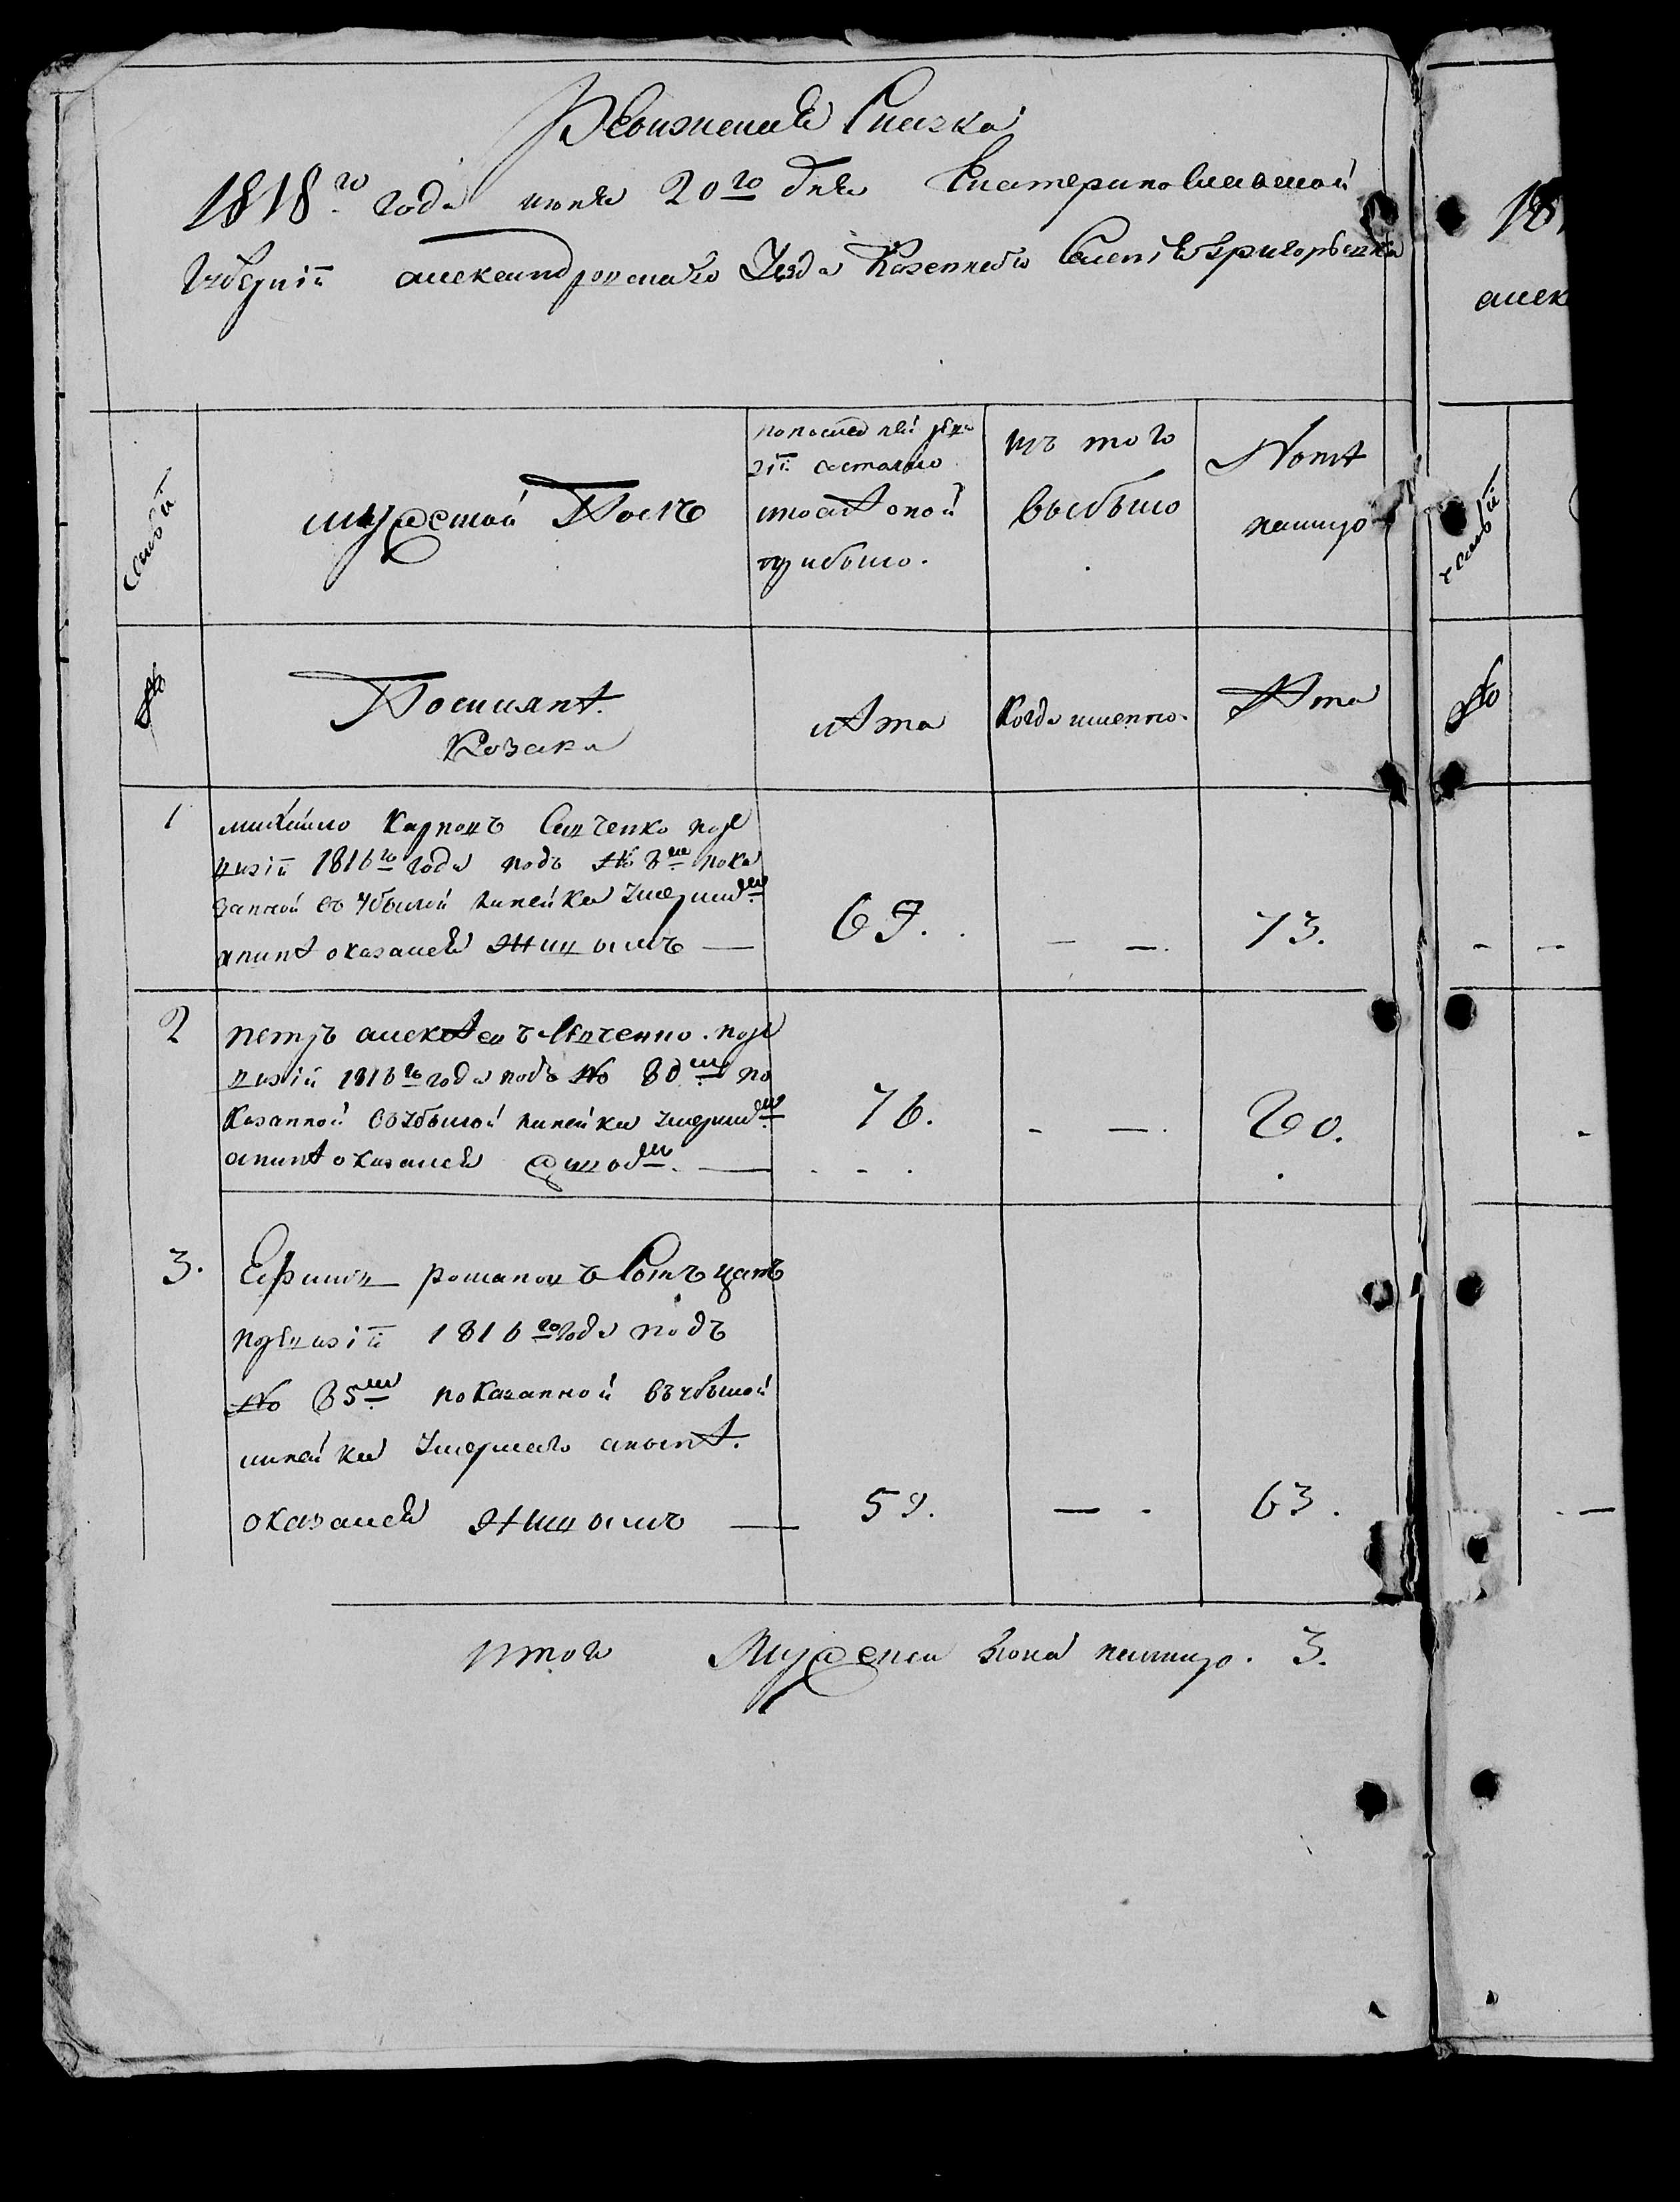 Ревизская Сказка
1818го года июня 20го дня Екатеринославской
Губернiи александровскаго Уезда Казеннаго Селенiя григорьевка
семьи
мужеской Полъ
попоследней реви
зiи состояло
ипослѣоной
прибыло.
изъ того
выбыло
Нонѣ
налицо
№
Поселянѣ.
Козаки
лѣта
Когда именно.
Лѣта
1
михайло Карповъ Савченко поре
визiи 1816го года подъ № 8м пока
занной въ убылой линейки умершим
анинѣ оказался живымъ —
69.
— —.
73.
2
петръ алексѣевъ Савченко. поре
визiи 1816го года подъ № 80м по
Казанной въ убылой линейки умершим
анинѣ оказался
76.
- —.
80.
3.
Ефимъ романовъ
поревизiи 1816го года подъ
№ 85м показанной въ убылой
линейки умершаго анынѣ.
оказался живымъ —
59.
— -
63.
итого Мужеска пола налицо. 3.
18
алек
семьи
№